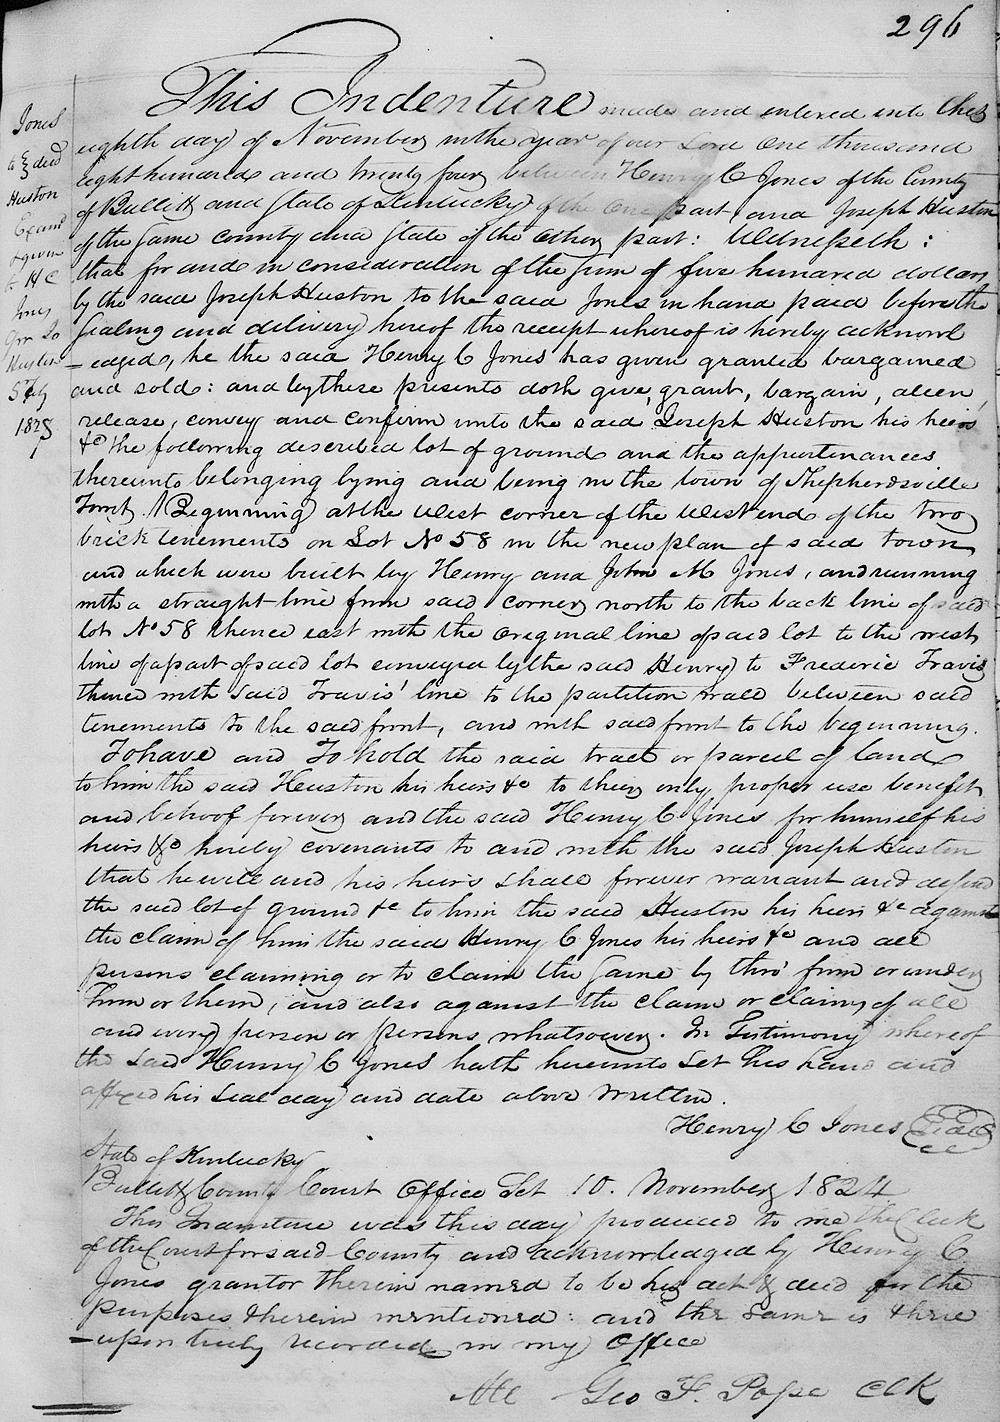 296
Jones
to } deed
Huston
Exam'd
& given
to H C
Jones
for Jo
Huston
5 July
1825
This Indenture made and entered into the
eighth day of November in the year of our Lord One thousand
eight hundred and twenty four between Henry C Jones of the County
of Bullitt and State of Kentucky of the One part and Joseph Huston
of the same county and State of the other part: Witnesseth:
that for and in consideration of the sum of five hundred dollars
by the said Joseph Huston to the said Jones in hand paid before the
sealing and delivery hereof the receipt whereof is hereby acknowl
-edged, he the said Henry C Jones has given granted bargained
and sold: and by these presents doth give, grant, bargain, alien,
release, convey and confirm unto the said Joseph Huston his heirs
&c the following described lot of ground and the appurtenances
thereunto belonging lying and being in the town of Shepherdsville
To wit. Beginning at the West corner of the West end of the two
brick tenements on Lot No 58 in the new plan of said town
and which were built by Henry and John M Jones, and running
with a straight line from said corner north to the back line of said
lot No 58 thence east with the original line of said lot to the west
line of a part of said lot conveyed by the said Henry to Frederic Travis
thence with said Travis' line to the partition wall between said
tenements to the said front, and with said front to the beginning.
To have and To hold the said tract or parcel of land
to him the said Huston his heirs &c to their only proper use benefit
and behoof forever and the said Henry C Jones for himself his
heirs &c hereby covenants to and with the said Joseph Huston
that he will and his heirs shall forever warrant and defend
the said lot of ground &c to him the said Huston his heirs &c against
the claim of him the said Henry C Jones his heirs &c and all
persons claiming or to claim the same by thro' from or under
him or them, and also against the claim or claims of all
and every person or persons whatsoever. In Testimony whereof
the said Henry C Jones hath hereunto set his hand and
affixed his seal day and date above written.
Henry C Jones Seal
State of Kentucky
Bullitt County Court Office Sct 10. November 1824
This Indenture was this day produced to me the Clerk
of the Court for said County and acknowledged by Henry C
Jones grantor therein named to be his act & deed for the
purposes therein mentioned: and the same is there
-upon truly recorded in my Office
Att Geo F. Pope Clk